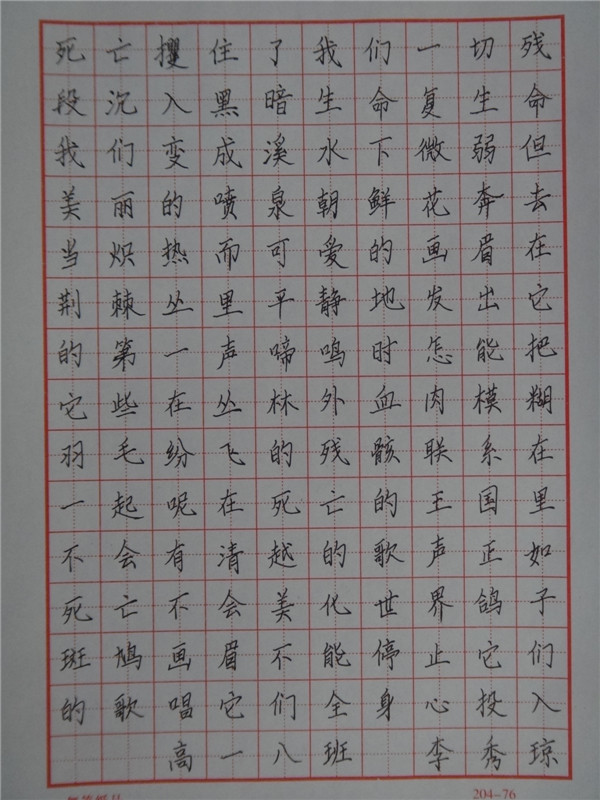 死亡攫住了我们一切残
段沉入黑暗生命复生命
我们变成溪水下微弱但
美丽的喷泉朝鲜花奔去
当炽热而可爱的画眉在
荆棘丛里平静地发出它
的第一声啼鸣时怎能把
它些在丛林外血肉模糊
羽毛纷飞的残骸联系在
一起呢在死亡的王国里
不会有清越的歌声正如
死亡不会美化世界鸽子
斑鸠画眉不能停止它们
的歌唱它们全身心投入
高一八班 李秀琼
204-76